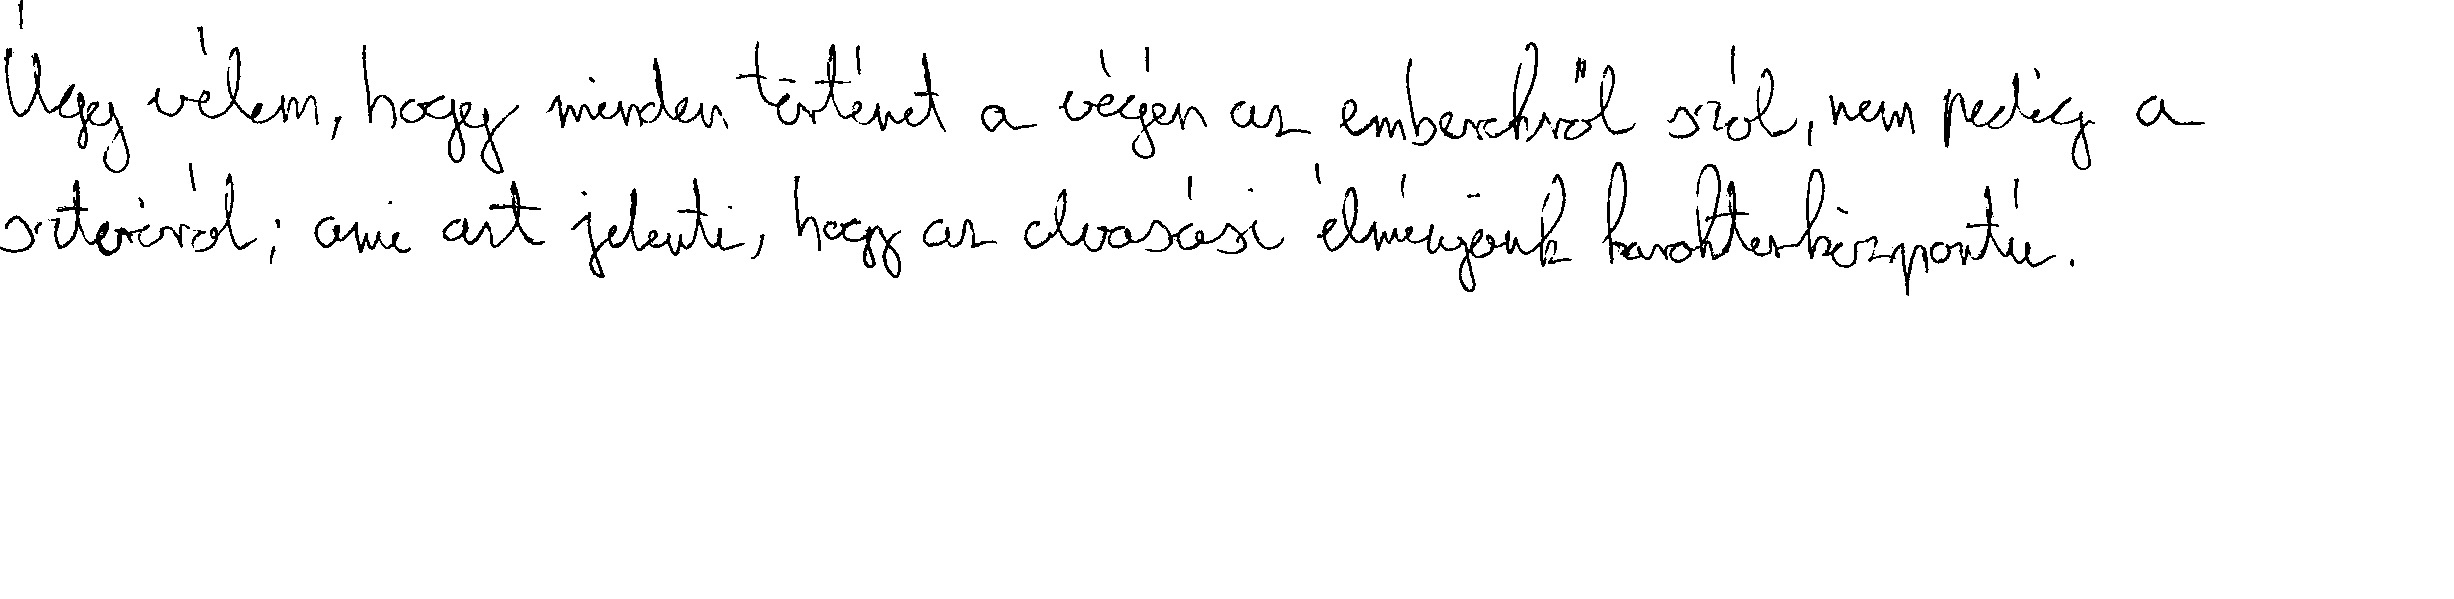 Úgy vélem, hogy minden történet a végén az emberekről szól, nem pedig a
sztoriról; ami azt jelenti, hogy az olvasási élményünk karakterközpontú.